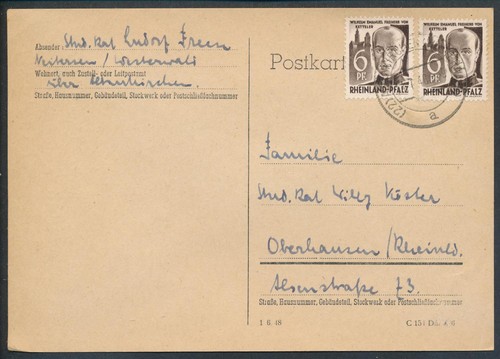 Absender: Stud. Rat Rudolf
Westerwald
Wohnort, auch Zustell- oder Leitpostamt
über Altenkirchen.
Straße, Hausnummer, Gebäudeteil, Stockwerk oder Postschließfachnummer
Postkart
WILHELM EMANUEL FREIHERR VON KETTELER
6 PF.
RHEINLAND-PFALZ
WILHELM EMANUEL FREIHERR VON KETTELER
6 PF.
RHEINLAND-PFALZ
(22)
a
Familie
Stud. Rat Willy Köster
Oberhausen/Rheinld.
Alsenstraße 73.
Straße, Hausnummer, Gebäudeteil, Stockwerk oder Postschließfachnummer
C 151 Din A 6